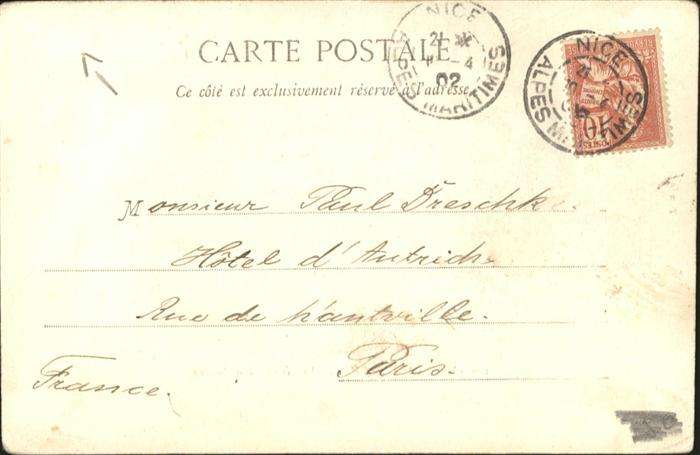 CARTE POSTALE
Ce côté est exclusivement réservé à l'adresse
NICE
21
4
02
ALPES MARITIMES
NICE
ALPES MARITIMES
Monsieur Paul Dreschke
Hôtel d'Autriche
Rue de hantville.
Paris.
France.